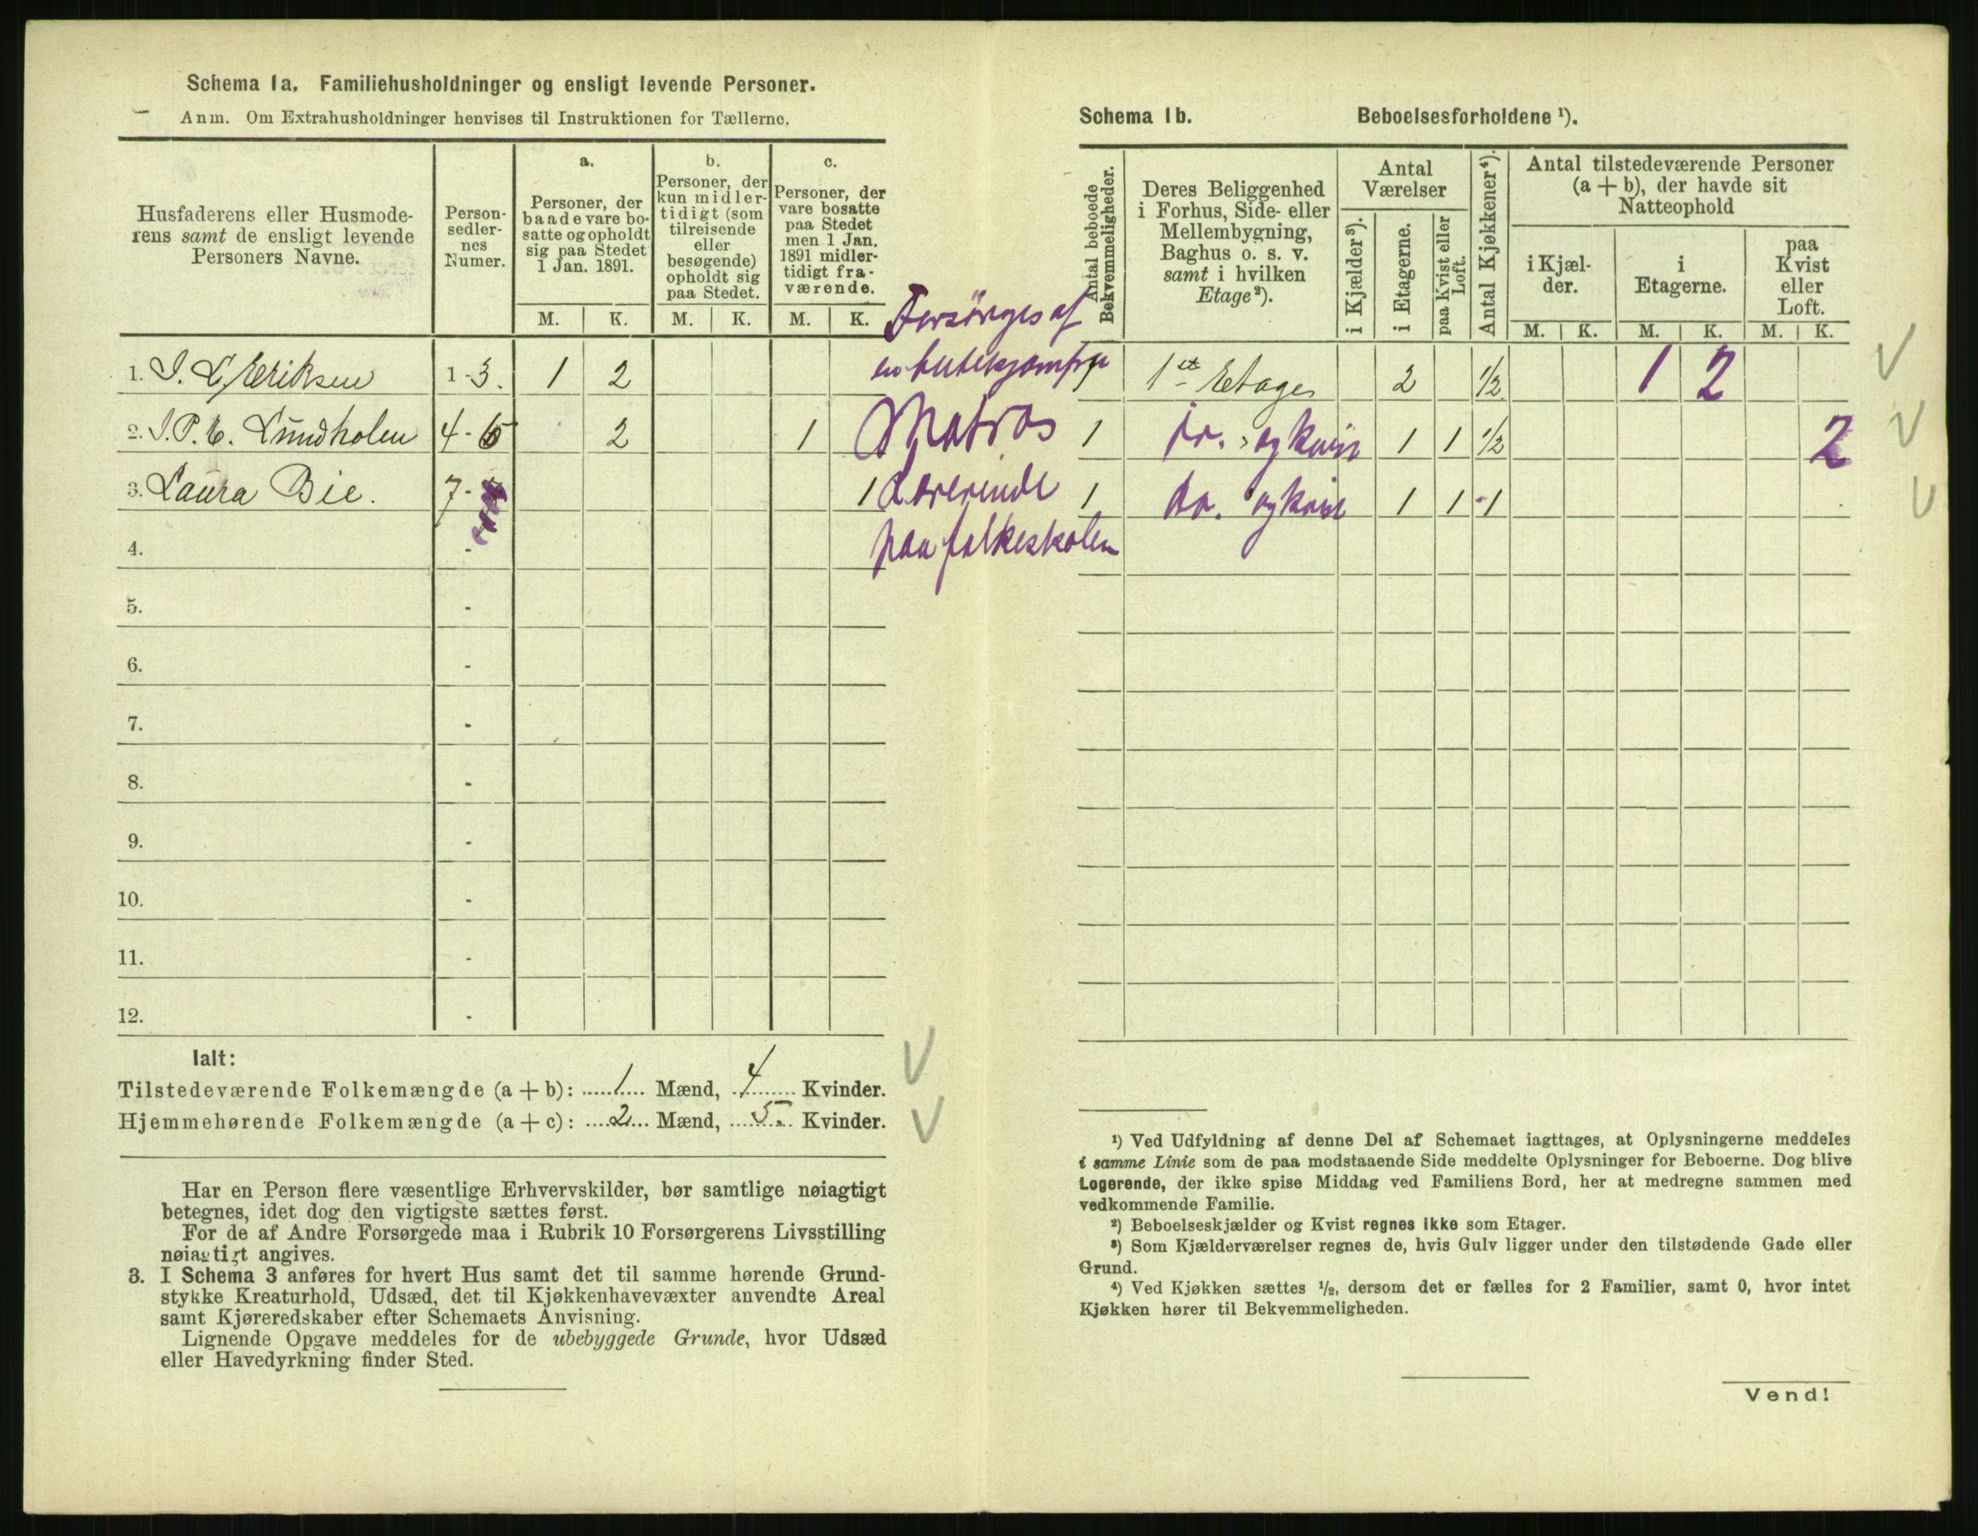 Schema 1a. Familiehusholdninger og ensligt levende Personer.
Anm. Om Extrahusholdninger henvises til Instruktionen for Tællerne.
Husfaderens eller Husmode-
rens samt de ensligt levende
Personers Navne.
Person-
sedler-
nes
Numer.
a.
Personer, der
baade vare bo-
satte og opholdt
sig paa Stedet
1 Jan. 1891.
b.
Personer, der
kun midler-
tidigt (som
tilreisende
eller
besøgende)
opholdt sig
paa Stedet.
c.
Personer, der
vare bosatte
paa Stedet
men 1 Jan.
1891 midler-
tidigt fra-
værende.
M. K. M. K. M. K.
Forsörges af
en butikjomfru
1. I. L. Eriksen 1-3. 1 2
2. I. P. E. Lundholen 4-6 2 1 Matros
3. Laura Bie. 7- 1 Lærerinde
paa folkeskolen
4. -
5. -
6. -
7. -
8. -
9. -
10. -
11. -
12. -
Ialt:
Tilstedeværende Folkemængde (a + b): 1 Mænd, 4 Kvinder.
Hjemmehørende Folkemængde (a + c): 2 Mænd, 5. Kvinder.
Har en Person flere væsentlige Erhvervskilder, bør samtlige nøiagtigt
betegnes, idet dog den vigtigste sættes først.
For de af Andre Forsørgede maa i Rubrik 10 Forsørgerens Livsstilling
nøiagtigt angives.
3. I Schema 3 anføres for hvert Hus samt det til samme hørende Grund-
stykke Kreaturhold, Udsæd, det til Kjøkkenhavevæxter anvendte Areal
samt Kjøreredskaber efter Schemaets Anvisning.
Lignende Opgave meddeles for de ubebyggede Grunde, hvor Udsæd
eller Havedyrkning finder Sted.
Schema 1b. Beboelsesforholdene ¹).
Antal beboede
Bekvemmeligheder.
Deres Beliggenhed
i Forhus, Side- eller
Mellembygning,
Baghus o. s. v.
samt i hvilken
Etage²).
Antal
Værelser
i Kjælder³).
i Etagerne.
paa Kvist eller
Loft.
Antal Kjøkkener⁴).
Antal tilstedeværende Personer
(a + b), der havde sit
Natteophold
i Kjæl-
der.
i
Etagerne.
paa
Kvist
eller
Loft.
M. K. M. K. M. K.
1 1ste Etage 2 1/2 1 2
1 do. og kvist 1 1 1/2 2
1 do. og kvist 1 1 1
¹) Ved Udfyldning af denne Del af Schemaet iagttages, at Oplysningerne meddeles
i samme Linie som de paa modstaaende Side meddelte Oplysninger for Beboerne. Dog blive
Logerende, der ikke spise Middag ved Familiens Bord, her at medregne sammen med
vedkommende Familie.
²) Beboelseskjælder og Kvist regnes ikke som Etager.
³) Som Kjælderværelser regnes de, hvis Gulv ligger under den tilstødende Gade eller
Grund.
⁴) Ved Kjøkken sættes ½, dersom det er fælles for 2 Familier, samt 0, hvor intet
Kjøkken hører til Bekvemmeligheden.
Vend!